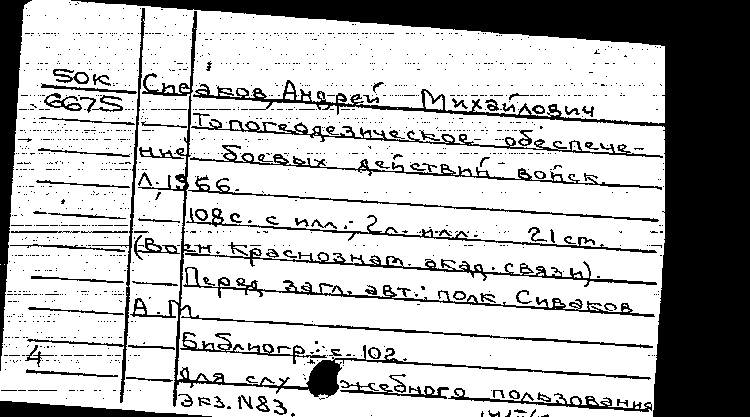 50К Сиваков, Андрей Михайлович
6675
Топогеодезическое обеспече-
ние боевых действий войск.
Л., 1966.
108с. с илл.; 2л. илл. 21 cm.
(Воен. Краснознам. акад. связи).
Перед загл. авт.: полк. Сиваков
А.М.
Библиогр.: с. 102.
4
Для служебного пользования
Экз. N83.